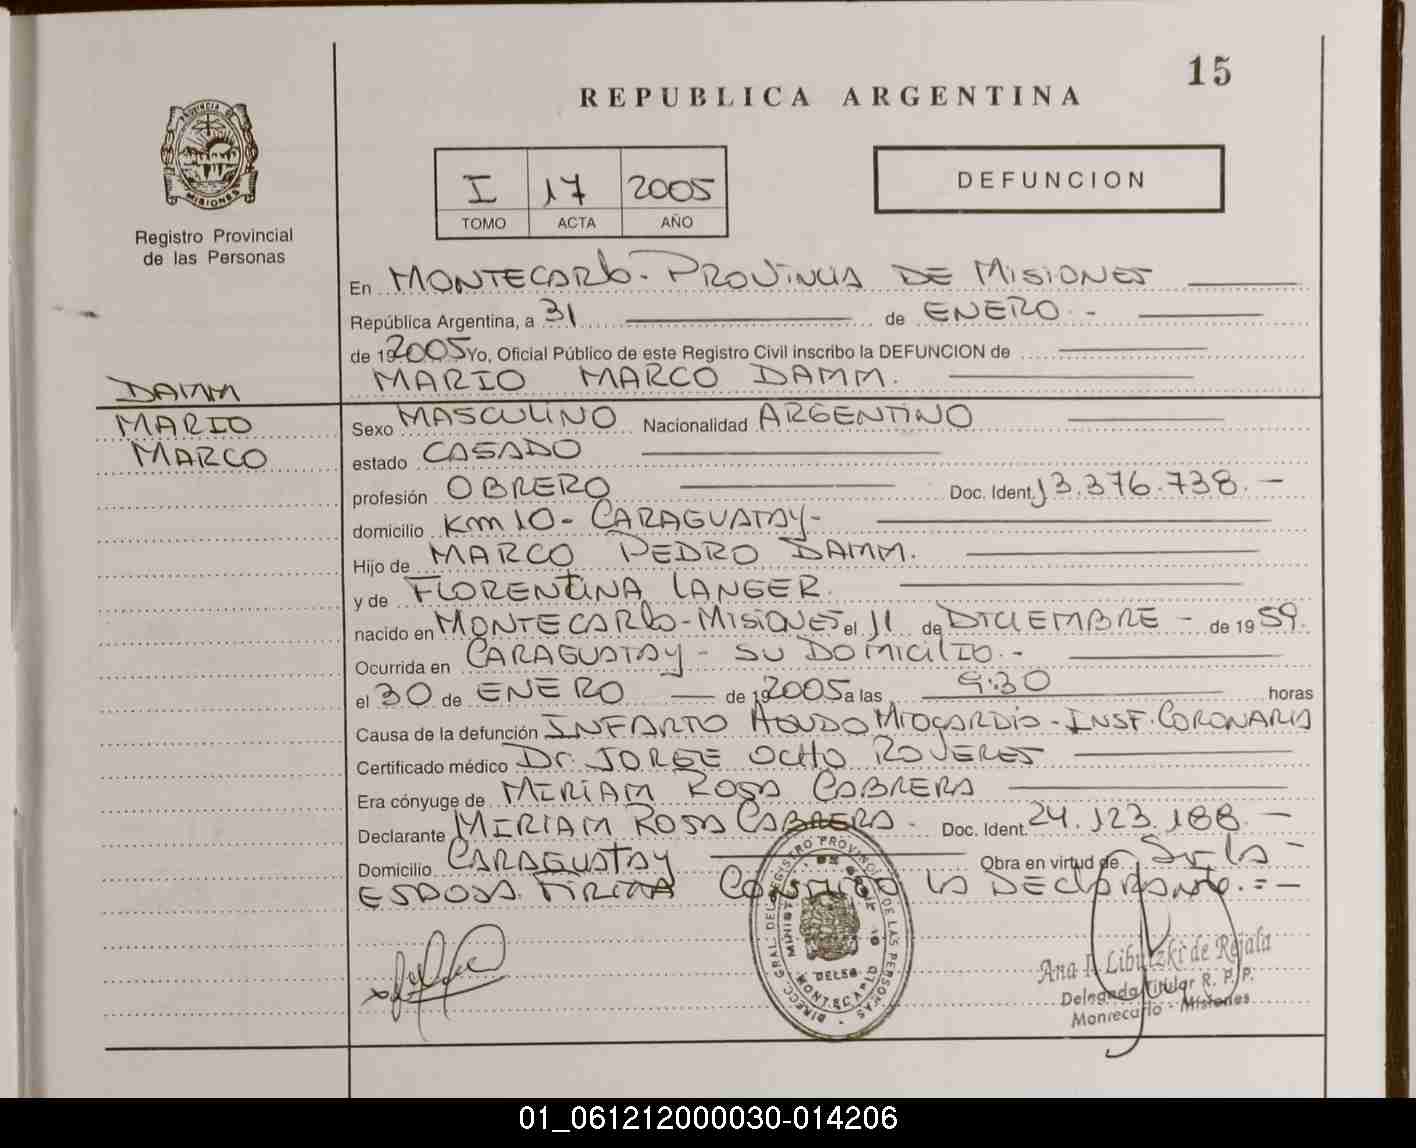 15
REPUBLICA ARGENTINA
PROVINCIA DE
MISIONES
Registro Provincial
de las Personas
I 17 2005
TOMO ACTA AÑO
DEFUNCION
En MONTECARLO - PROVINCIA DE MISIONES
República Argentina, a 31 de ENERO -
de 192005 Yo, Oficial Público de este Registro Civil inscribo la DEFUNCION de
MARIO MARCO DAMM.
DAMM
MARIO
MARCO
Sexo MASCULINO Nacionalidad ARGENTINO
estado CASADO
profesión OBRERO Doc. Ident. 13.376.738. -
domicilio Km 10 - CARAGUATAY -
Hijo de MARCO PEDRO DAMM.
y de FLORENTINA LANGER.
nacido en MONTECARLO - MISIONES el 11 de DICIEMBRE - de 19 59.
Ocurrida en CARAGUATAY - SU DOMICILIO. -
el 30 de ENERO de 192005 a las 9:30 horas
Causa de la defunción INFARTO AGUDO MIOCARDIO - INSF. CORONARIA
Certificado médico Dr. JORGE OCHO ROVERES
Era cónyuge de MIRIAM ROSA CABRERA
Declarante MIRIAM ROSA CABRERA - Doc. Ident. 24.123.188. -
Domicilio CARAGUATAY Obra en virtud de Ser la -
ESPOSA. FIRMA CONMIGO LA DECLARANTE. = -
DIRECC. GRAL. DEL REGISTRO PROVINCIAL DE LAS PERSONAS
MONTECARLO
Ana I. Libutzki de Rejala
Delegada Titular R. P. P.
Montecarlo - Misiones
01_061212000030-014206